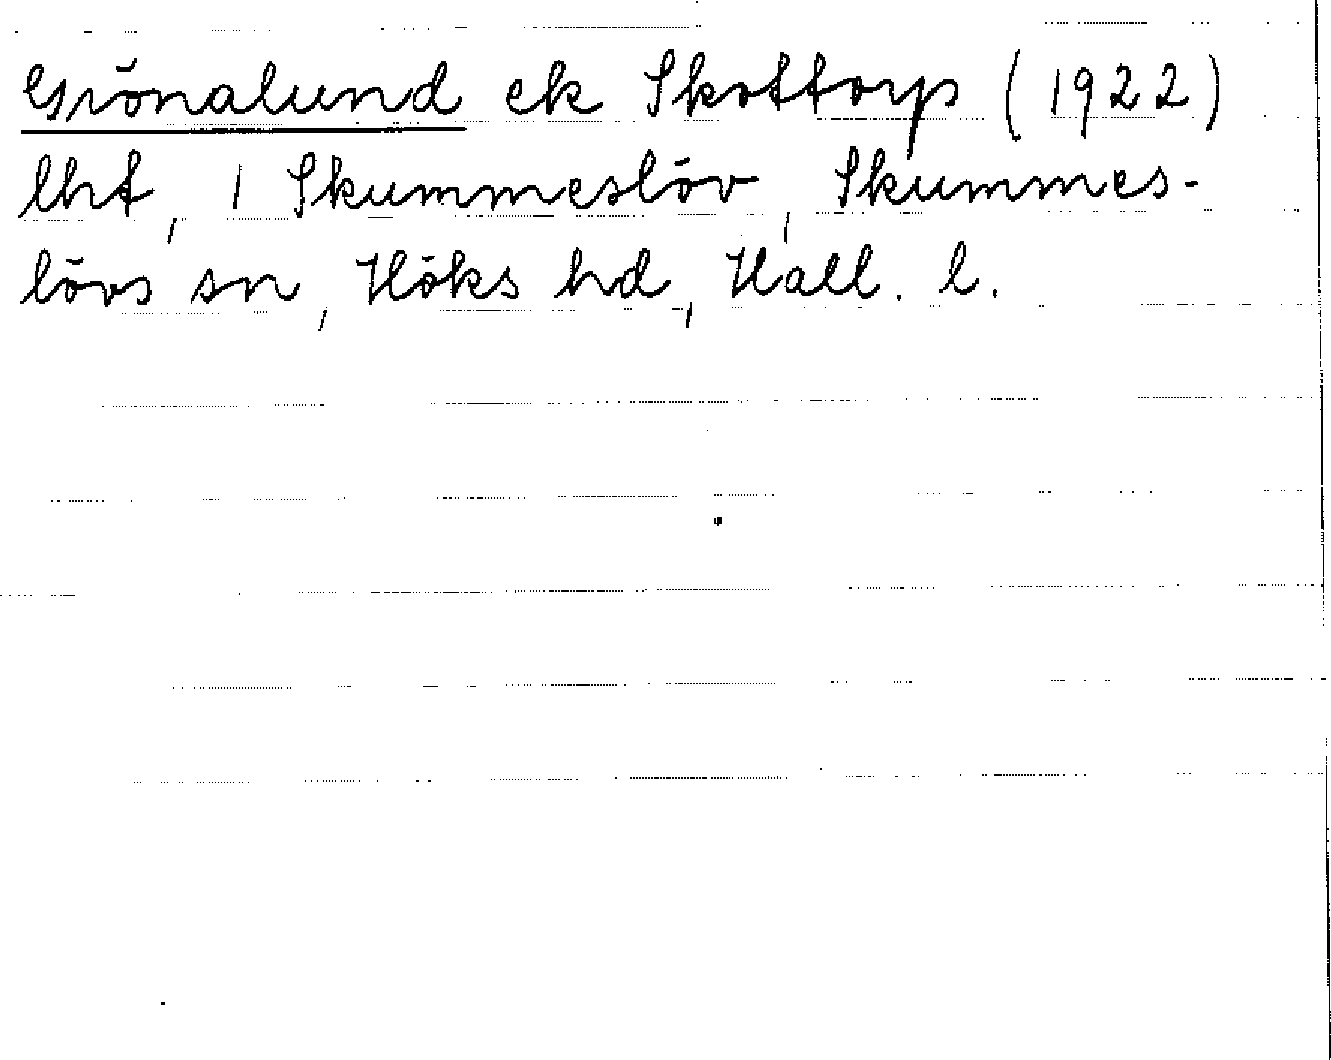 Grönalund ek Skottorp (1922)
lht, 1 Skummeslöv, Skummes-
lövs sn, Höks hd, Hall. l.